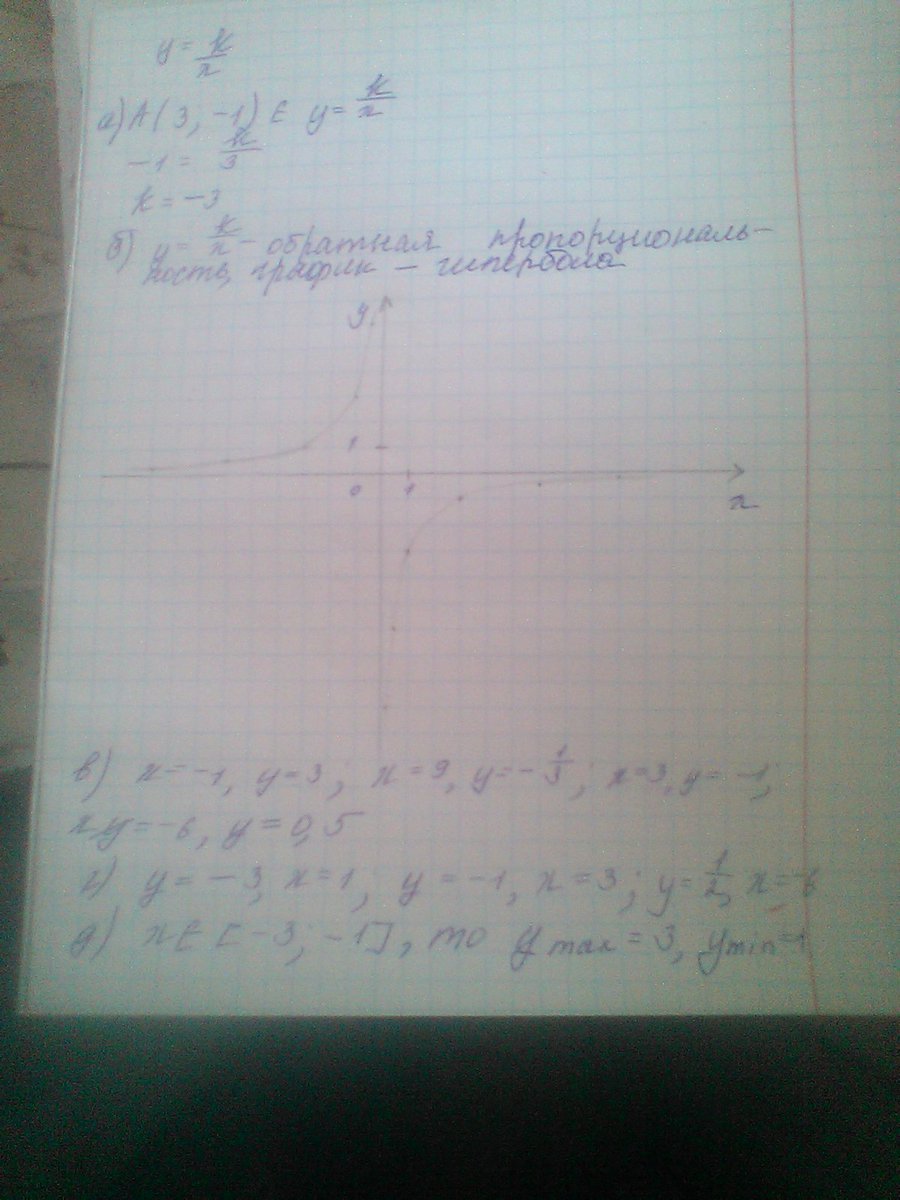 y = k/x
а) A(3, -1) ∈ y = k/x
-1 = k/3
k = -3
б) y = k/x - обратная пропорциональ-
ность, график — гипербола
y
1
0 1
x
в) x = -1, y = 3; x = 9, y = -1/3; x = 3, y = -1;
x y = -6, y = 0,5
г) y = -3, x = 1, y = -1, x = 3; y = 1/2, x = -6
д) x ∈ [-3; -1], то y max = 3, y min = 1